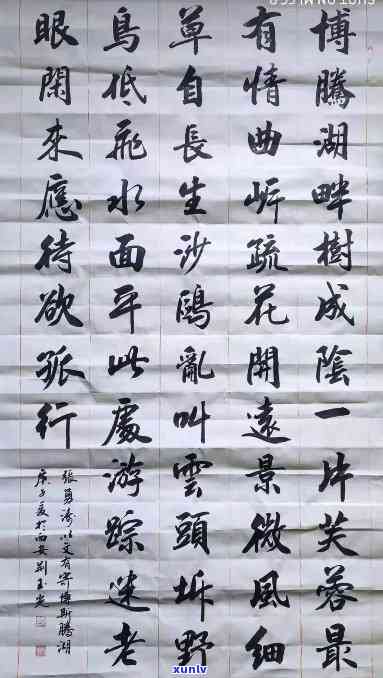 博騰湖畔樹成陰一片芙蓉最
有情曲岸疏花開遠景微風細
草自長生沙鷗亂叫雲頭坼野
鳥低飛水面平此處游踪迷老
眼閑來應待欲孤行
張勇濤以文有寄博斯騰湖
庚子夏於西安劉玉光
xunwl